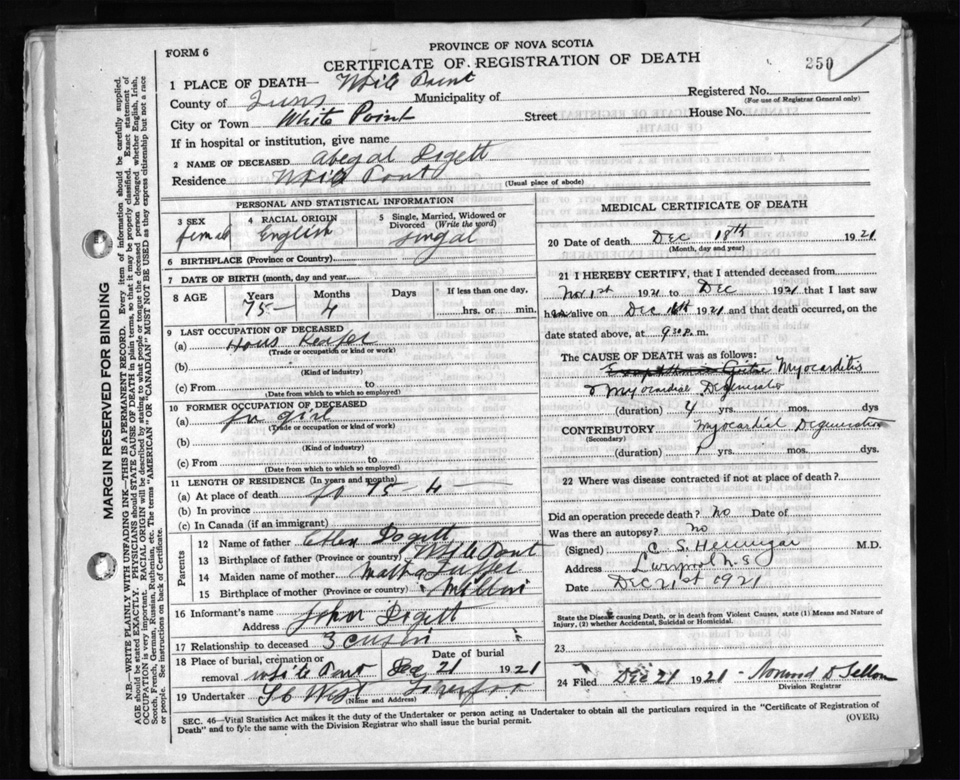 FORM 6
PROVINCE OF NOVA SCOTIA
CERTIFICATE OF REGISTRATION OF DEATH
250
1 PLACE OF DEATH— White Point
Registered No.
(For use of Registrar General only)
County of Municipality of
City or Town White Point Street House No.
If in hospital or institution, give name
2 NAME OF DECEASED Abegal Digett
Residence White Pont
(Usual place of abode)
PERSONAL AND STATISTICAL INFORMATION
3 SEX female 4 RACIAL ORIGIN English 5 Single, Married, Widowed or Divorced (Write the word) Singal
6 BIRTHPLACE (Province or Country)
7 DATE OF BIRTH (month, day and year
8 AGE Years 75 Months 4 Days If less than one day, hrs. or min.
9 LAST OCCUPATION OF DECEASED
(a) Hous Keaper
(Trade or occupation or kind or work)
(b)
(Kind of industry)
(c) From to
(Date from which to which so employed)
10 FORMER OCCUPATION OF DECEASED
(a)
(Trade or occupation or kind of work)
(b)
(Kind of industry)
(c) From to
(Date from which to which so employed)
11 LENGTH OF RESIDENCE (In years and months)
(a) At place of death 75 - 4
(b) In province
(c) In Canada (if an immigrant)
Parents
12 Name of father Digett
13 Birthplace of father (Province or country) White Pont
14 Maiden name of mother
15 Birthplace of mother (Province or country)
16 Informant's name John Digett
Address
17 Relationship to deceased 3 cusin
18 Place of burial, cremation or removal White Pont Date of burial Dec 21 1921
19 Undertaker
(Name and Address)
MEDICAL CERTIFICATE OF DEATH
20 Date of death Dec 18th 1921
(Month, day and year)
21 I HEREBY CERTIFY, that I attended deceased from
Nov 1st 1921 to Dec 1921 that I last saw
her alive on Dec 16th 1921 and that death occurred, on the
date stated above, at 9 30 P. m.
The CAUSE OF DEATH was as follows:
Myocarditis
Myocardial
(duration) 4 yrs. mos. dys
CONTRIBUTORY Myocardial Degeneration
(Secondary)
(duration) yrs. mos. dys.
22 Where was disease contracted if not at place of death?
Did an operation precede death? No Date of
Was there an autopsy? No
(Signed) C. S. M.D.
Address Liverpool N.S.
Date Dec 21st 1921
State the Disease causing Death, or in death from Violent Causes, state (1) Means and Nature of
Injury, (2) whether Accidental, Suicidal or Homicidal.
23
24 Filed Dec 21 1921
Division Registrar
SEC. 46—Vital Statistics Act makes it the duty of the Undertaker or person acting as Undertaker to obtain all the particulars required in the "Certificate of Registration of
Death" and to fyle the same with the Division Registrar who shall issue the burial permit.
(OVER)
MARGIN RESERVED FOR BINDING
N.B.—WRITE PLAINLY WITH UNFADING INK—THIS IS A PERMANENT RECORD. Every item of information should be carefully supplied.
AGE should be stated EXACTLY. PHYSICIANS should STATE CAUSE OF DEATH in plain terms, so that it may be properly classified. Exact statement of
OCCUPATION is very important. RACIAL ORIGIN will be described by stating to what people or tongue the deceased person belonged whether English, Irish,
Scotch, French, German, Russian, Ruthenian, etc. The terms "AMERICAN" OR "CANADIAN" MUST NOT BE USED as they express citizenship but not a race
or people. See instructions on back of Certificate.